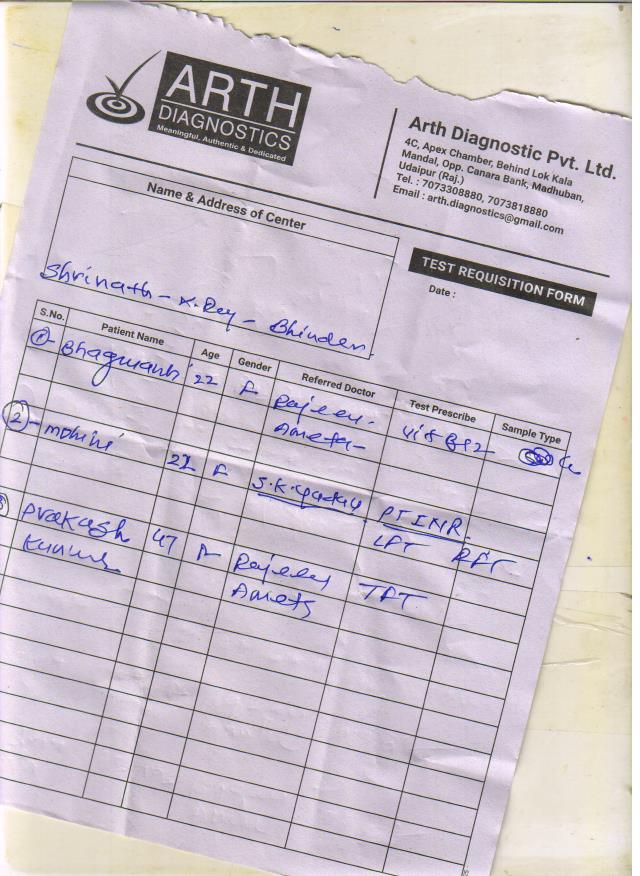 ARTH
DIAGNOSTICS
Meaningful, Authentic & Dedicated
Arth Diagnostic Pvt. Ltd.
4C, Apex Chamber, Behind Lok Kala
Mandal, Opp. Canara Bank, Madhuban,
Udaipur (Raj.)
Tel. : 7073308880, 7073818880
Email : arth.diagnostics@gmail.com
Name & Address of Center
TEST REQUISITION FORM
Date :
Shrinath - X.Rey - Bhinder
S.No. Patient Name Age Gender Referred Doctor Test Prescribe Sample Type
1 - 22 F Rajeev. Vit B12
Ameta
2 - mohini F S.K. PTINR
LFT RFT
3 Prakash 47 Rajeev TFT
Ameta